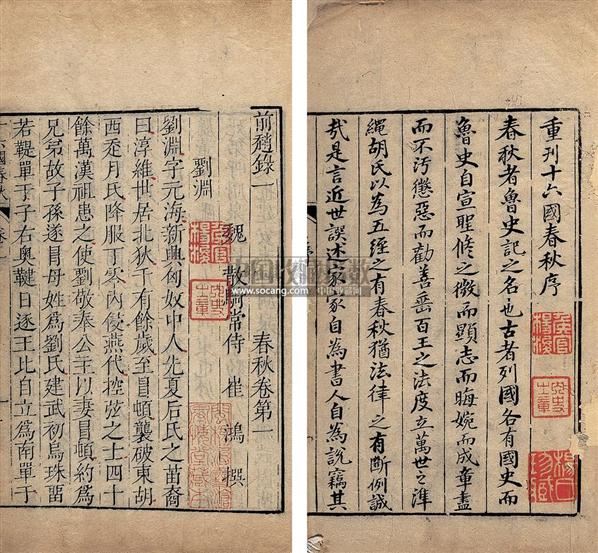 重刊十六國春秋序
春秋者魯史記之名也古者列國各有國史而
魯史自宣聖脩之微而顯志而晦婉而成章盡
而不污懲惡而勸善垂百王之法度立萬世之準
繩胡氏以為五經之有春秋猶法律之有斷例誠
哉是言近世誤述家家自為書人自為說竊其
春秋卷第一
魏散騎常侍崔鴻撰
前趙錄一
劉淵
劉淵字元海新興匈奴中人先夏后氏之苗裔
曰淳維世居北狄千有餘歲至冒頓襲破東胡
西走月氏降服丁零內侵燕代控弦之士四十
餘萬漢祖患之使劉敬奉公主以妻冒頓約為
兄弟故子孫遂冒母姓為劉氏建武初烏珠留
若鞮單于子右奧鞬日逐王比自立為南單于
國春秋
www.socang.com